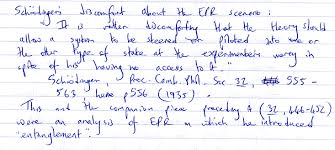 Schrödinger's discomfort about the EPR scenario:
It is rather discomforting that the theory should
allow a system to be steered or piloted into one or
the other type of state at the experimenter's mercy in
spite of his having no access to it."
Schrödinger, Proc. Camb. Phil. Soc. 32, 555-
563, here p556 (1935).
This and the companion piece preceding it (32, 446-452)
were an analysis of EPR in which he introduced
"entanglement".